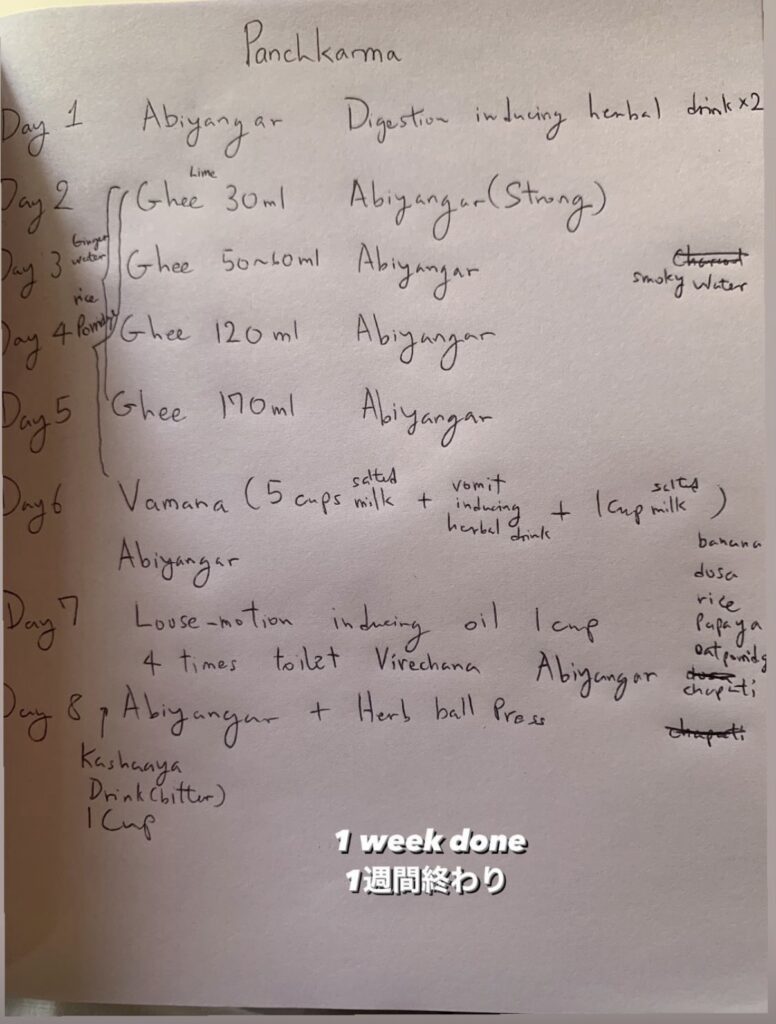 Panchkarma
Day 1 Abiyangar Digestion inducing herbal drink ×2
Lime
Day 2 Ghee 30ml Abiyangar (Strong)
Ginger water
Day 3 Ghee 50~60ml Abiyangar
smoky water
rice
Day 4 Ghee 120 ml Abiyangar
Day 5 Ghee 170ml Abiyangar
Day 6 Vamana (5 cups salted milk + vomit inducing herbal drink + 1 cup salted milk)
Abiyangar
banana
dosa
rice
Papaya
Day 7 Loose-motion inducing oil 1 cup
4 times toilet Virechana Abiyangar
chapati
Day 8 Abiyangar + Herb ball Press
chapati
Kashaaya
Drink (bitter)
1 Cup
1 week done
1週間終わり